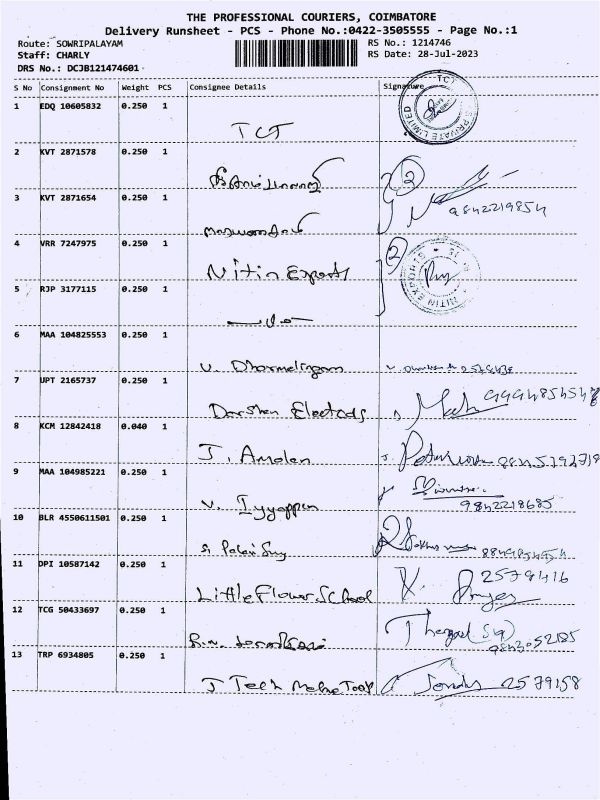 THE PROFESSIONAL COURIERS, COIMBATORE
Delivery Runsheet - PCS - Phone No.:0422-3505555 - Page No.:1
Route: SOWRIPALAYAM
RS No.: 1214746
Staff: CHARLY
RS Date: 28-Jul-2023
DRS No.: DCJB121474601
S No Consignment No Weight PCS Consignee Details Signature
1 EDQ 10605832 0.250 1
TCT
PRIVATE LIMITED
2 KVT 2871578 0.250 1
2
3 KVT 2871654 0.250 1
9842219854
4 VRR 7247975 0.250 1
Nitin Exports
2
NITIN EXPORTS
5 RJP 3177115 0.250 1
6 MAA 104825553 0.250 1
V. Dharmalingam
7 UPT 2165737 0.250 1
Darshan Electods
8 KCM 12842418 0.040 1
J. Amalan
9 MAA 104985221 0.250 1
V. Iyyappan
9842218685
10 BLR 4550611501 0.250 1
11 DPI 10587142 0.250 1
Little Flower School
2579416
12 TCG 50433697 0.250 1
13 TRP 6934805 0.250 1
J Tech
2579158